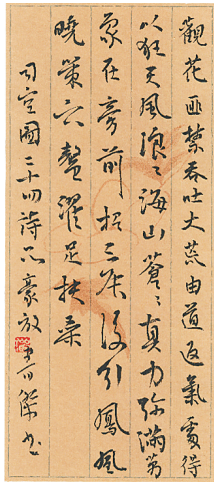 觀花匪禁吞吐大荒由道返氣處得
以狂天風浪〻海山蒼〻真力弥滿萬
象在旁前招三辰後引鳳凰
曉策六鰲濯足扶桑
司空圖二十四詩品豪放